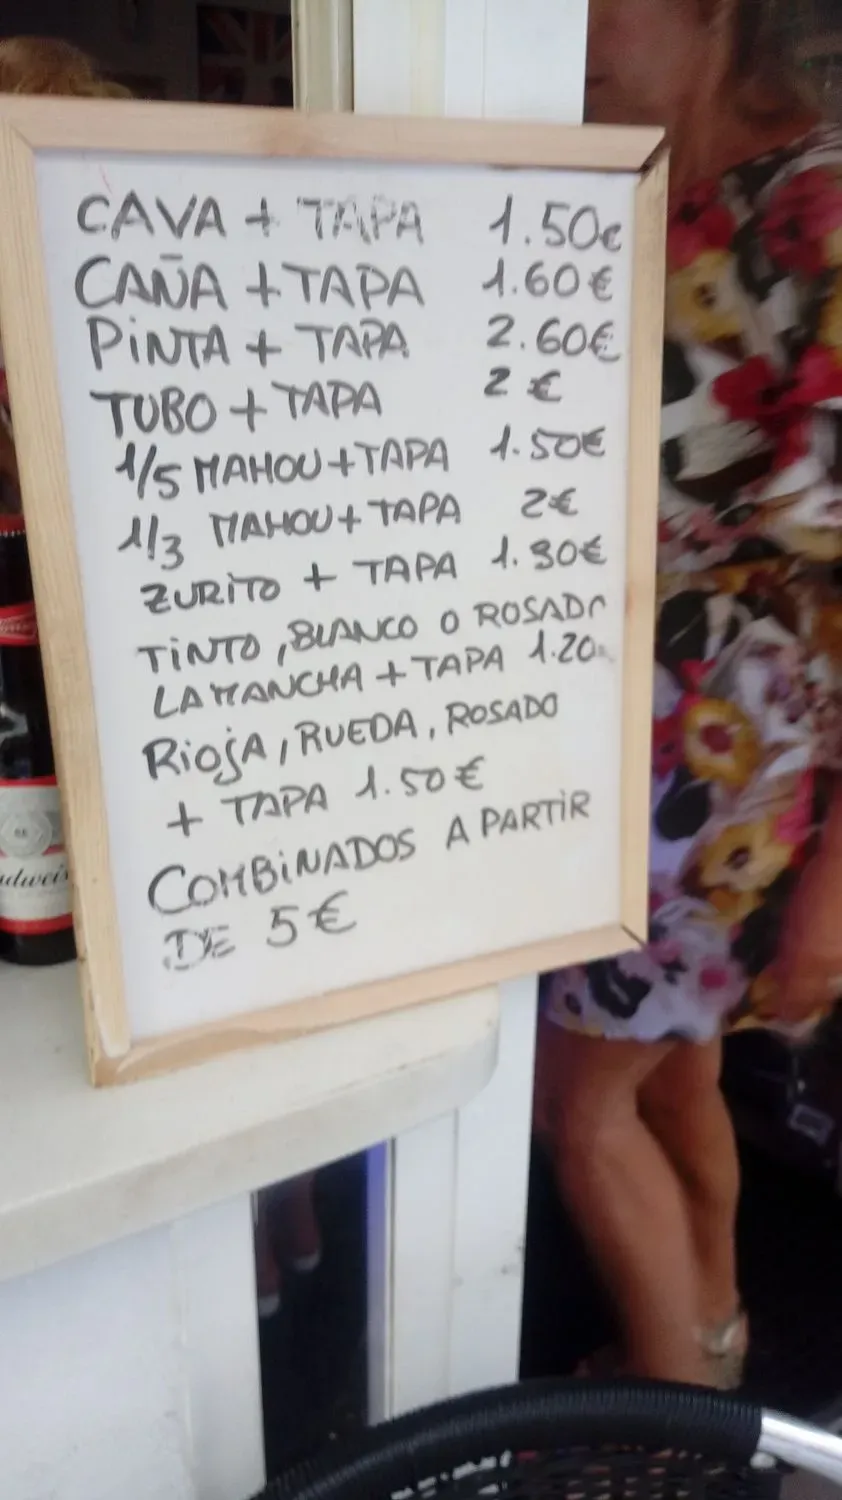 CAVA + TAPA 1.50€
CAÑA + TAPA 1.60€
PINTA + TAPA 2.60€
TUBO + TAPA 2€
1/5 MAHOU + TAPA 1.50€
1/3 MAHOU + TAPA 2€
ZURITO + TAPA 1.30€
TINTO, BLANCO O ROSADO
LA MANCHA + TAPA 1.20
RIOJA, RUEDA, ROSADO
+ TAPA 1.50€
COMBINADOS A PARTIR
DE 5€